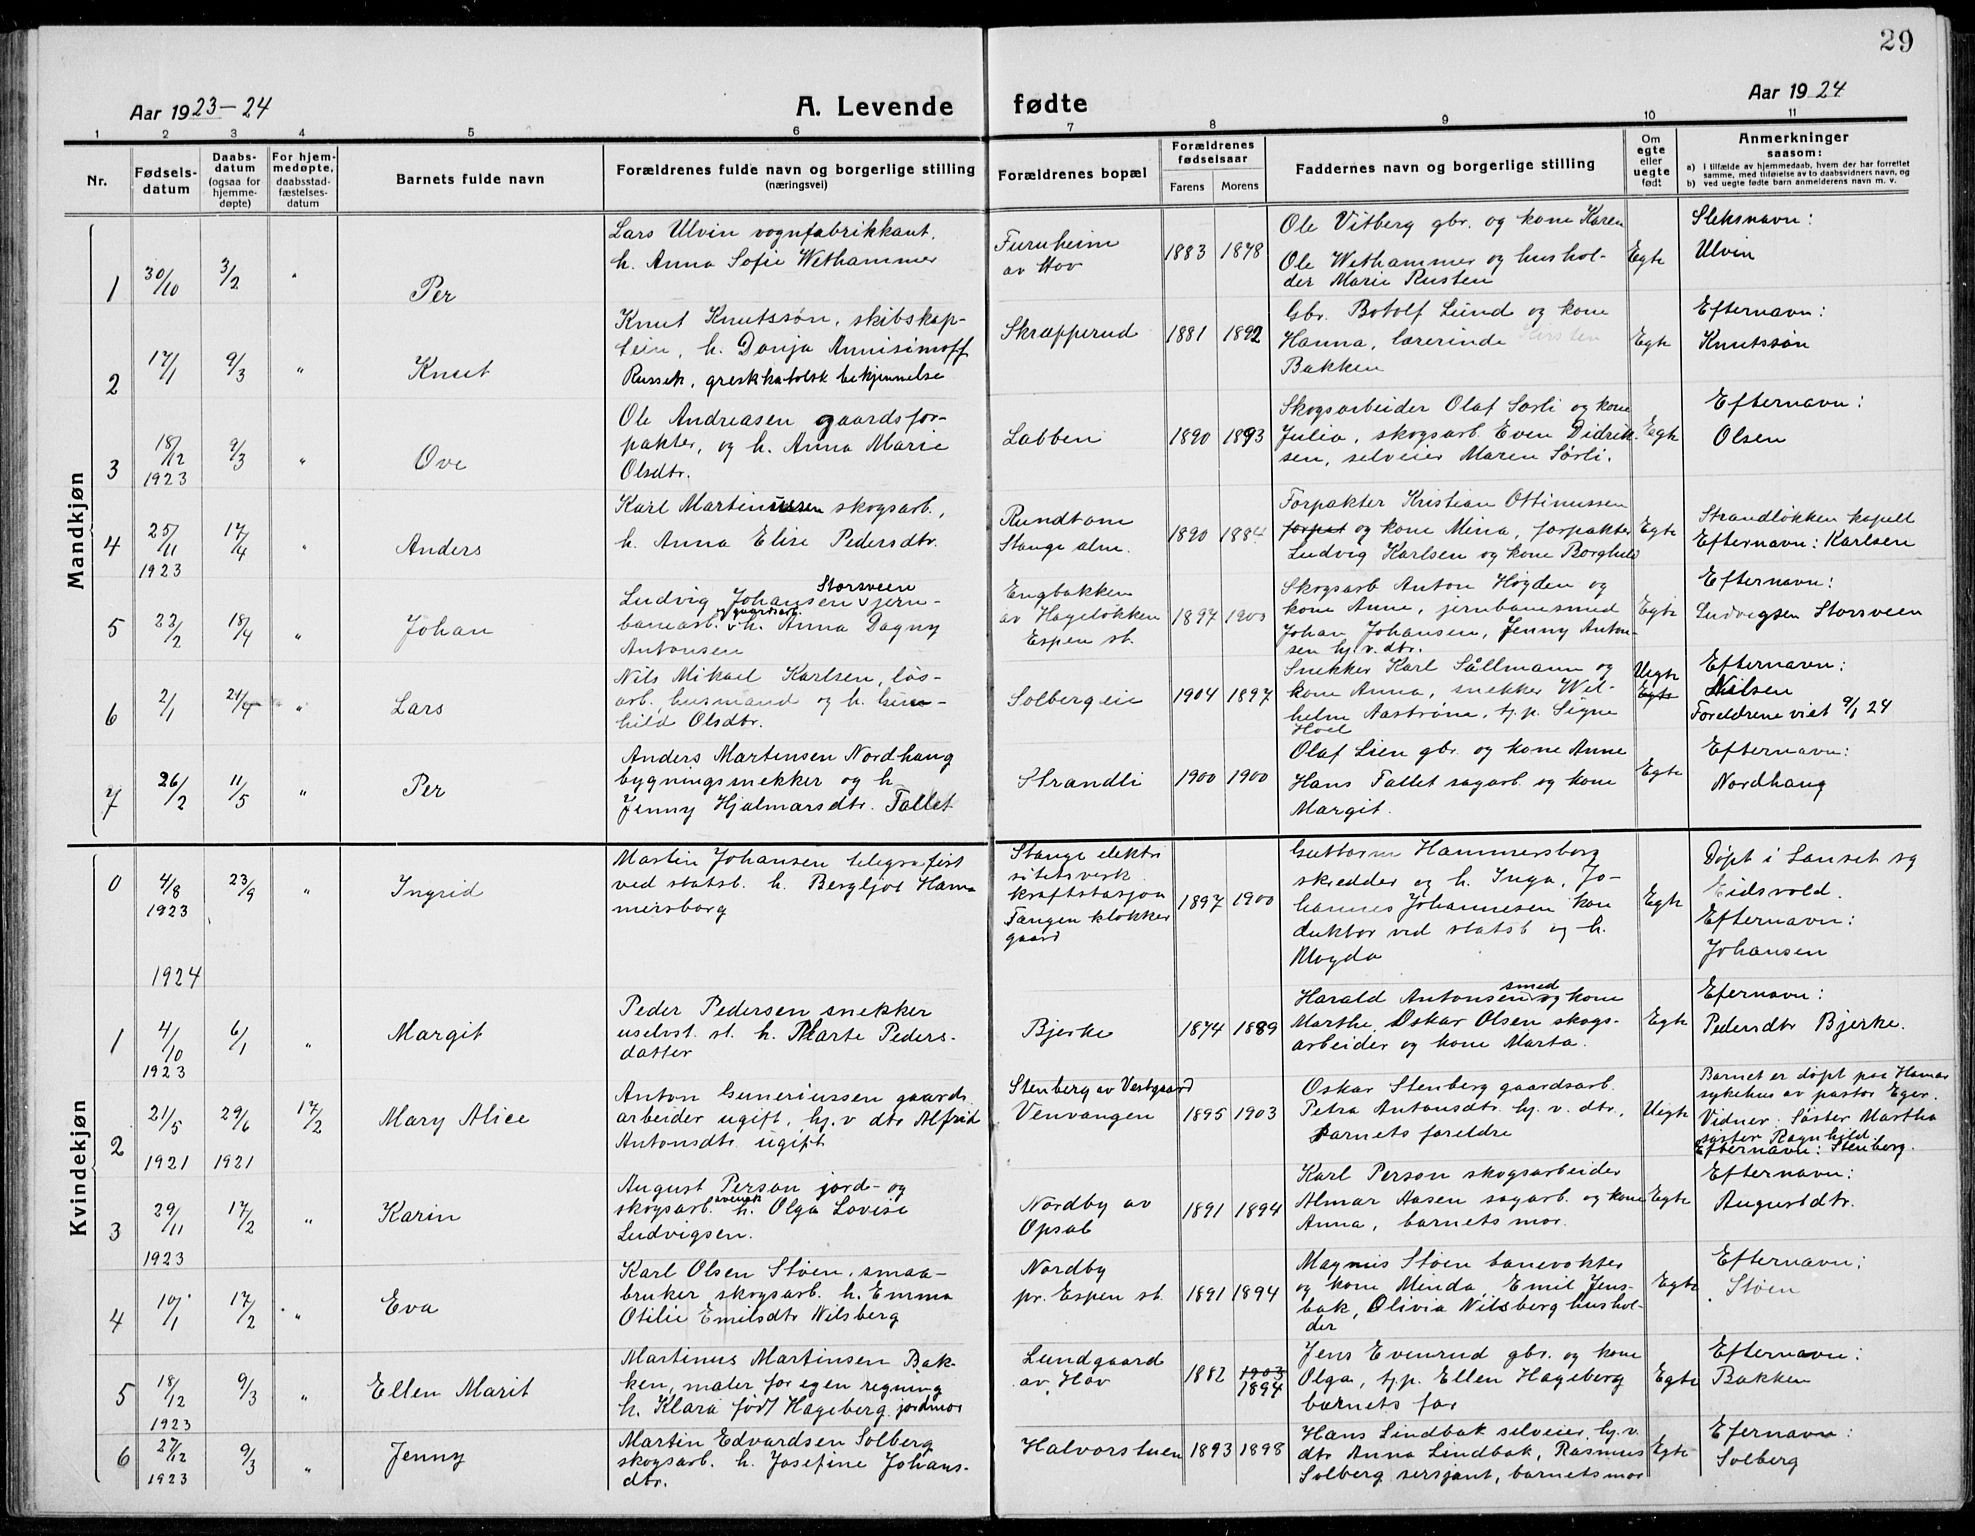 29
Aar 1923-24
A. Levende
fødte
Aar 1924
1 2 3 4 5 6 7 8 9 10 11
Nr.
Fødsels-
datum
Daabs-
datum
(ogsaa for
hjemme-
døpte)
For hjem-
medøpte,
daabsstad-
fæstelses-
datum
Barnets fulde navn
Forældrenes fulde navn og borgerlige stilling
(næringsvei)
Forældrenes bopæl
Forældrenes
fødselsaar
Farens Morens
Faddernes navn og borgerlige stilling
Om
egte
eller
uegte
født
Anmerkninger
saasom:
a) I tilfælde av hjemmedaab, hvem der har forrettet
samme, med tilføielse av to daabsvidners navn, og
b) ved uegte fødte barn anmelderens navn m. v.
Mandkjøn
1 30/10 3/2 " Per
Lars Ulvin vognfabrikkant.
h. Anna Sofie Wethammer
Furuheim
av Hov
1883 1878
Ole Vitberg gbr. og kone Karen
Ole Wethammer og hushol-
der Marie Rusten
Egte
Sleksnavn:
Ulvin
2 17/1 9/3 " Knut
Knut Knutssøn, skibskap-
tein, h. Donja Annisimoff
Russek, greskkatolsk bekjennelse
Skræpperud
1881 1892
Gbr. Botolf Lund og kone
Hanna, lærerinde Kirsten
Bakken
Egte
Efternavn:
Knutssøn
3 18/12 1923 9/3 " Ove
Ole Andreasen gaardsfor-
pakter, og h. Anna Marie
Olsdtr.
Labben
1890 1893
Skogsarbeider Olaf Sørli og kone
Julia, skogsarb. Even Didrik-
sen, selveier Maren Sørli.
Egte
Efternavn:
Olsen
4 25/11 1923 17/4 " Anders
Karl Martinussen skogsarb.,
h. Anna Elise Pedersdtr.
Rundtom
Stange alm.
1890 1884
Forpakter Kristian Ottinussen
forpat og kone Mina, forpakter
Ludvig Karlsen og kone Borghild
Egte
Strandløkken kapell
Efternavn: Karlsen
5 23/2 18/4 " Johan
Storsveen
Ludvig Johansen jern-
og gaardsarb.
banearb. h. Anna Dagny
Antonsen
Engbakken
av Hageløkken
Espen st.
1897 1900
Skogsarb Anton Høgden og
kone Anne, jernbanesmed
Johan Johansen, Jenny Anton-
sen hj. v. dtr.
Egte
Efternavn:
Ludvigsen Storsveen
6 2/1 21/4 " Lars
Nils Mikael Karlsen, løs-
arb, husmand og h. Gun-
hild Olsdtr.
Solbergeie
1904 1897
Snekker Karl Sållmann og
kone Anna, snekker Wil-
helm Aastrøm, tj.p. Signe
Hoel
Uegte
Egte
Efternavn:
Nilsen
Foreldrene viet 9/1 24
7 26/2 11/5 " Per
Anders Martinsen Nordhaug
bygningssnekker og h.
Jenny Hjalmarsdtr. Tallet
Strandli
1900 1900
Olaf Lien gbr. og kone Anne
Hans Tallet sagarb. og kone
Margit.
Egte
Efternavn:
Nordhaug
Kvindekjøn
0 4/8 1923 23/9 " Ingrid
Martin Johansen telegrafist
ved statsb. h. Bergljot Ham-
mersborg
Stange elektri
sitetsverk.
kraftstasjon
Tangen klokker
gaard
1897 1900
Guttorm Hammersborg
skredder og h. Inga, Jo-
hannes Johannesen kon
duktør ved statsb og h.
Magda
Egte
Døpt i Lanset sg
Eidsvold.
Efternavn:
Johansen
1924
1 4/10 1923 6/1 " Margit
Peder Pedersen snekker
uselvst. st. h. Marte Peders-
datter
Bjerke
1874 1889
smed
Harald Antonsen og kone
Marthe. Oskar Olsen skogs-
arbeider og kone Marta.
Egte
Efernavn:
Pedersdtr Bjerke.
2 21/5 1921 29/6 1921 17/2 Mary Alice
Anton Gunerius­sen gaards
arbeider ugift, hj. v dtr Alfrid
Antonsdtr ugift
Stenberg av Vestgaard
Venvangen
1895 1903
Oskar Stenberg gaardsarb.
Petra Antonsdtr. hj. v. dtr,
barnets foreldre
Uegte
Barnet er døpt paa Hamar
sykehus av pastor Eger.
Vidner: Søster Martha
søster Ragnhild.
Efternavn: Stenberg.
3 29/11 1923 17/2 " Karin
August Person jord- og
svensk
skogsarb. h. Olga Lovise
Ludvigsen.
Nordby av
Opsal
1891 1894
Karl Person skogsarbeider
Almar Aasen sagarb. og kone
Anna, barnets mor.
Egte
Efternavn:
Augustdtr.
4 10/1 17/2 " Eva
Karl Olsen Støen, smaa-
bruker, skogsarb. h. Emma
Otilie Emilsdtr Nilsberg
Nordby
pr. Espen st.
1891 1894
Magnus Støen banevokter
og kone Minda, Emil Jens-
bak, Olivia Nilsberg hushol-
der
Egte
Efternavn:
Støen
5 18/12 1923 9/3 " Ellen Marit
Martinus Martinsen Bak-
ken, maler for egen regning
h. Klara født Hageberg, jordmor
Lundgaard
av Hov
1882 1903 1894
Jens Evenrud gbr. og kone
Olga, tj.p. Ellen Hageberg
barnets far
Egte
Efternavn:
Bakken
6 27/12 1923 9/3 " Jenny
Martin Edvardsen Solberg
skogsarb. h. Josefine Johans-
dtr.
Halvorstuen
1893 1898
Hans Lindbak selveier, hj. v.
dtr Anna Lindbak, Rasmus
Solberg sersjant, barnets mor
Egte
Efernavn:
Solberg